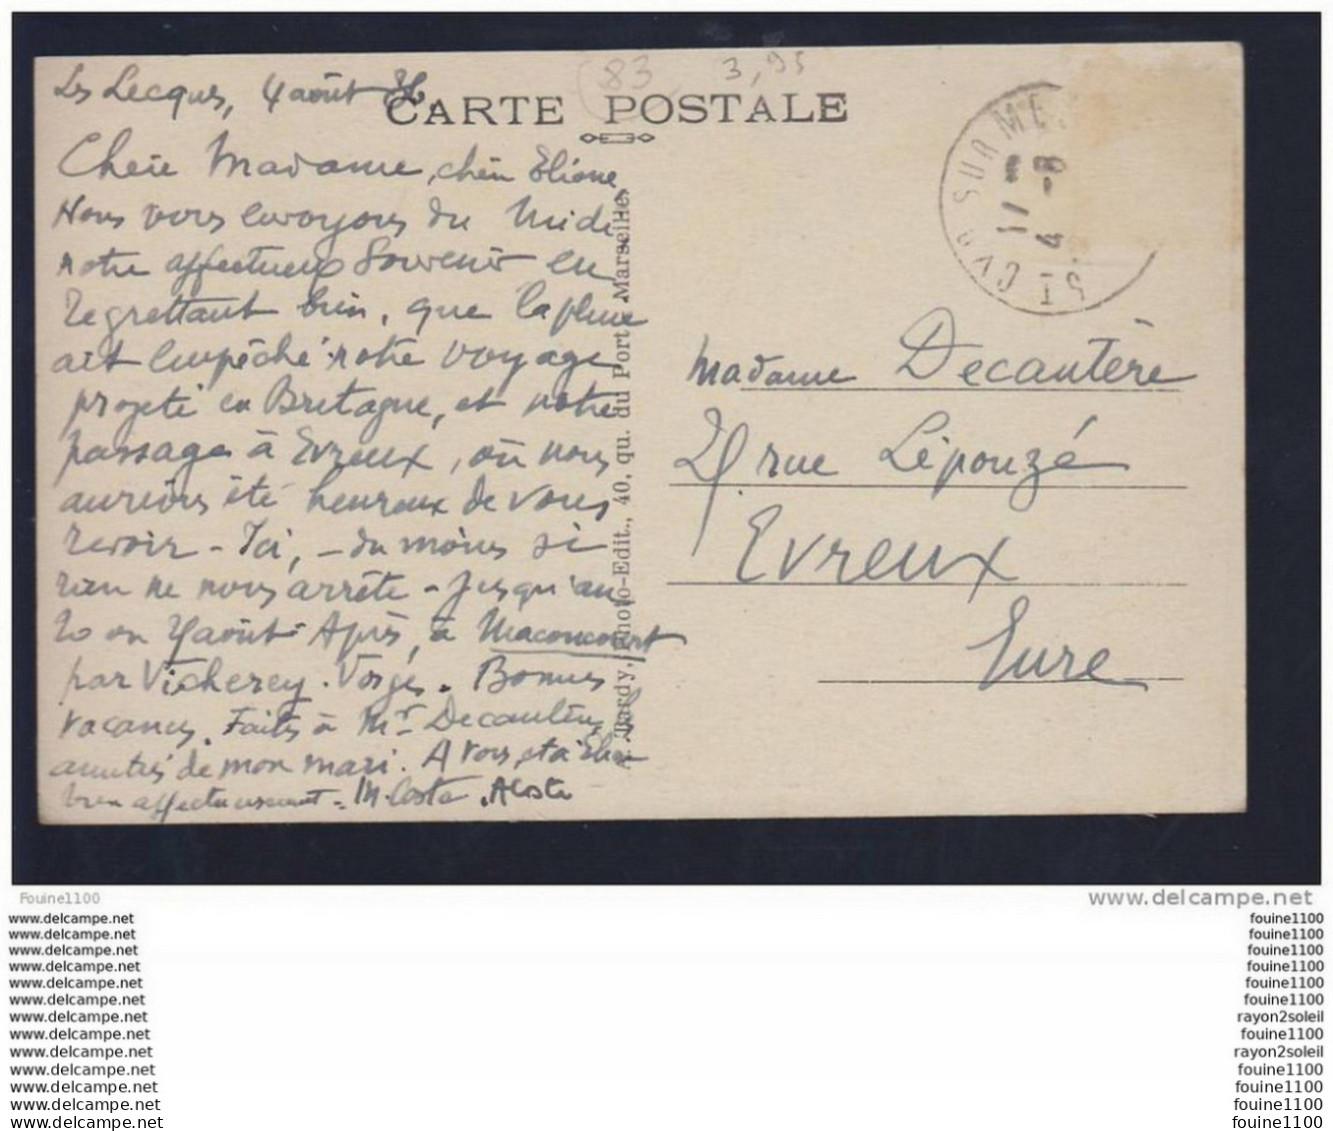 83 3,95
Les Lecques, 4 août 36.
CARTE POSTALE
Chère Madame, chère Eliane,
Nous vous envoyons du Midi
notre affectueux Souvenir en
regrettant bien, que la pluie
ait empêché notre voyage
projeté en Bretagne, et notre
passage à Evreux, où nous
aurions été heureux de vous
revoir - Ici, - du moins si
rien ne nous arrête - jusqu'au
20 ou août. Après, à Maconcourt
par Vicherey. Vosges. Bonnes
vacances. Faites à Mr Decantère, les
amitiés de mon mari. A vous, et à Eliane
bien affectueusement - M. Coste. ACoste
Tardy, Photo-Edit., 40, qu. du Port, Marseille.
ST CYR SUR ME
17
4 -8
Madame Decantère
rue Lépouzé
Evreux
Eure
Fouine1100
www.delcampe.net
www.delcampe.net fouine1100
www.delcampe.net fouine1100
www.delcampe.net fouine1100
www.delcampe.net fouine1100
www.delcampe.net fouine1100
www.delcampe.net fouine1100
www.delcampe.net rayon2soleil
www.delcampe.net fouine1100
www.delcampe.net rayon2soleil
www.delcampe.net fouine1100
www.delcampe.net fouine1100
www.delcampe.net fouine1100
www.delcampe.net fouine1100